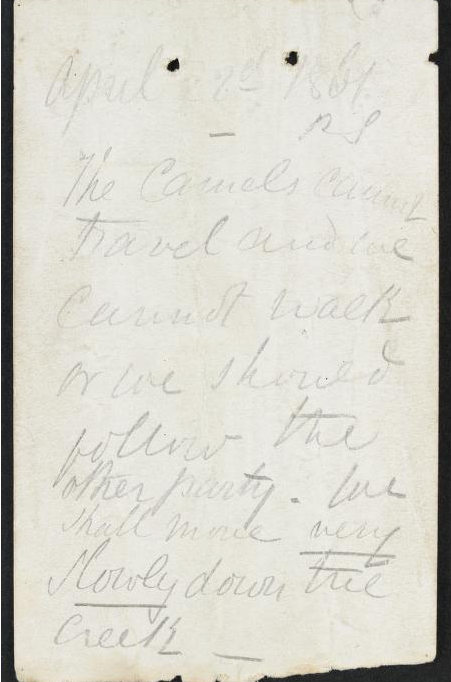 April 22d 1861.
PS
The Camels cannot
travel and we
cannot walk
or we should
follow the
other party. We
shall move very
slowly down the
Creek